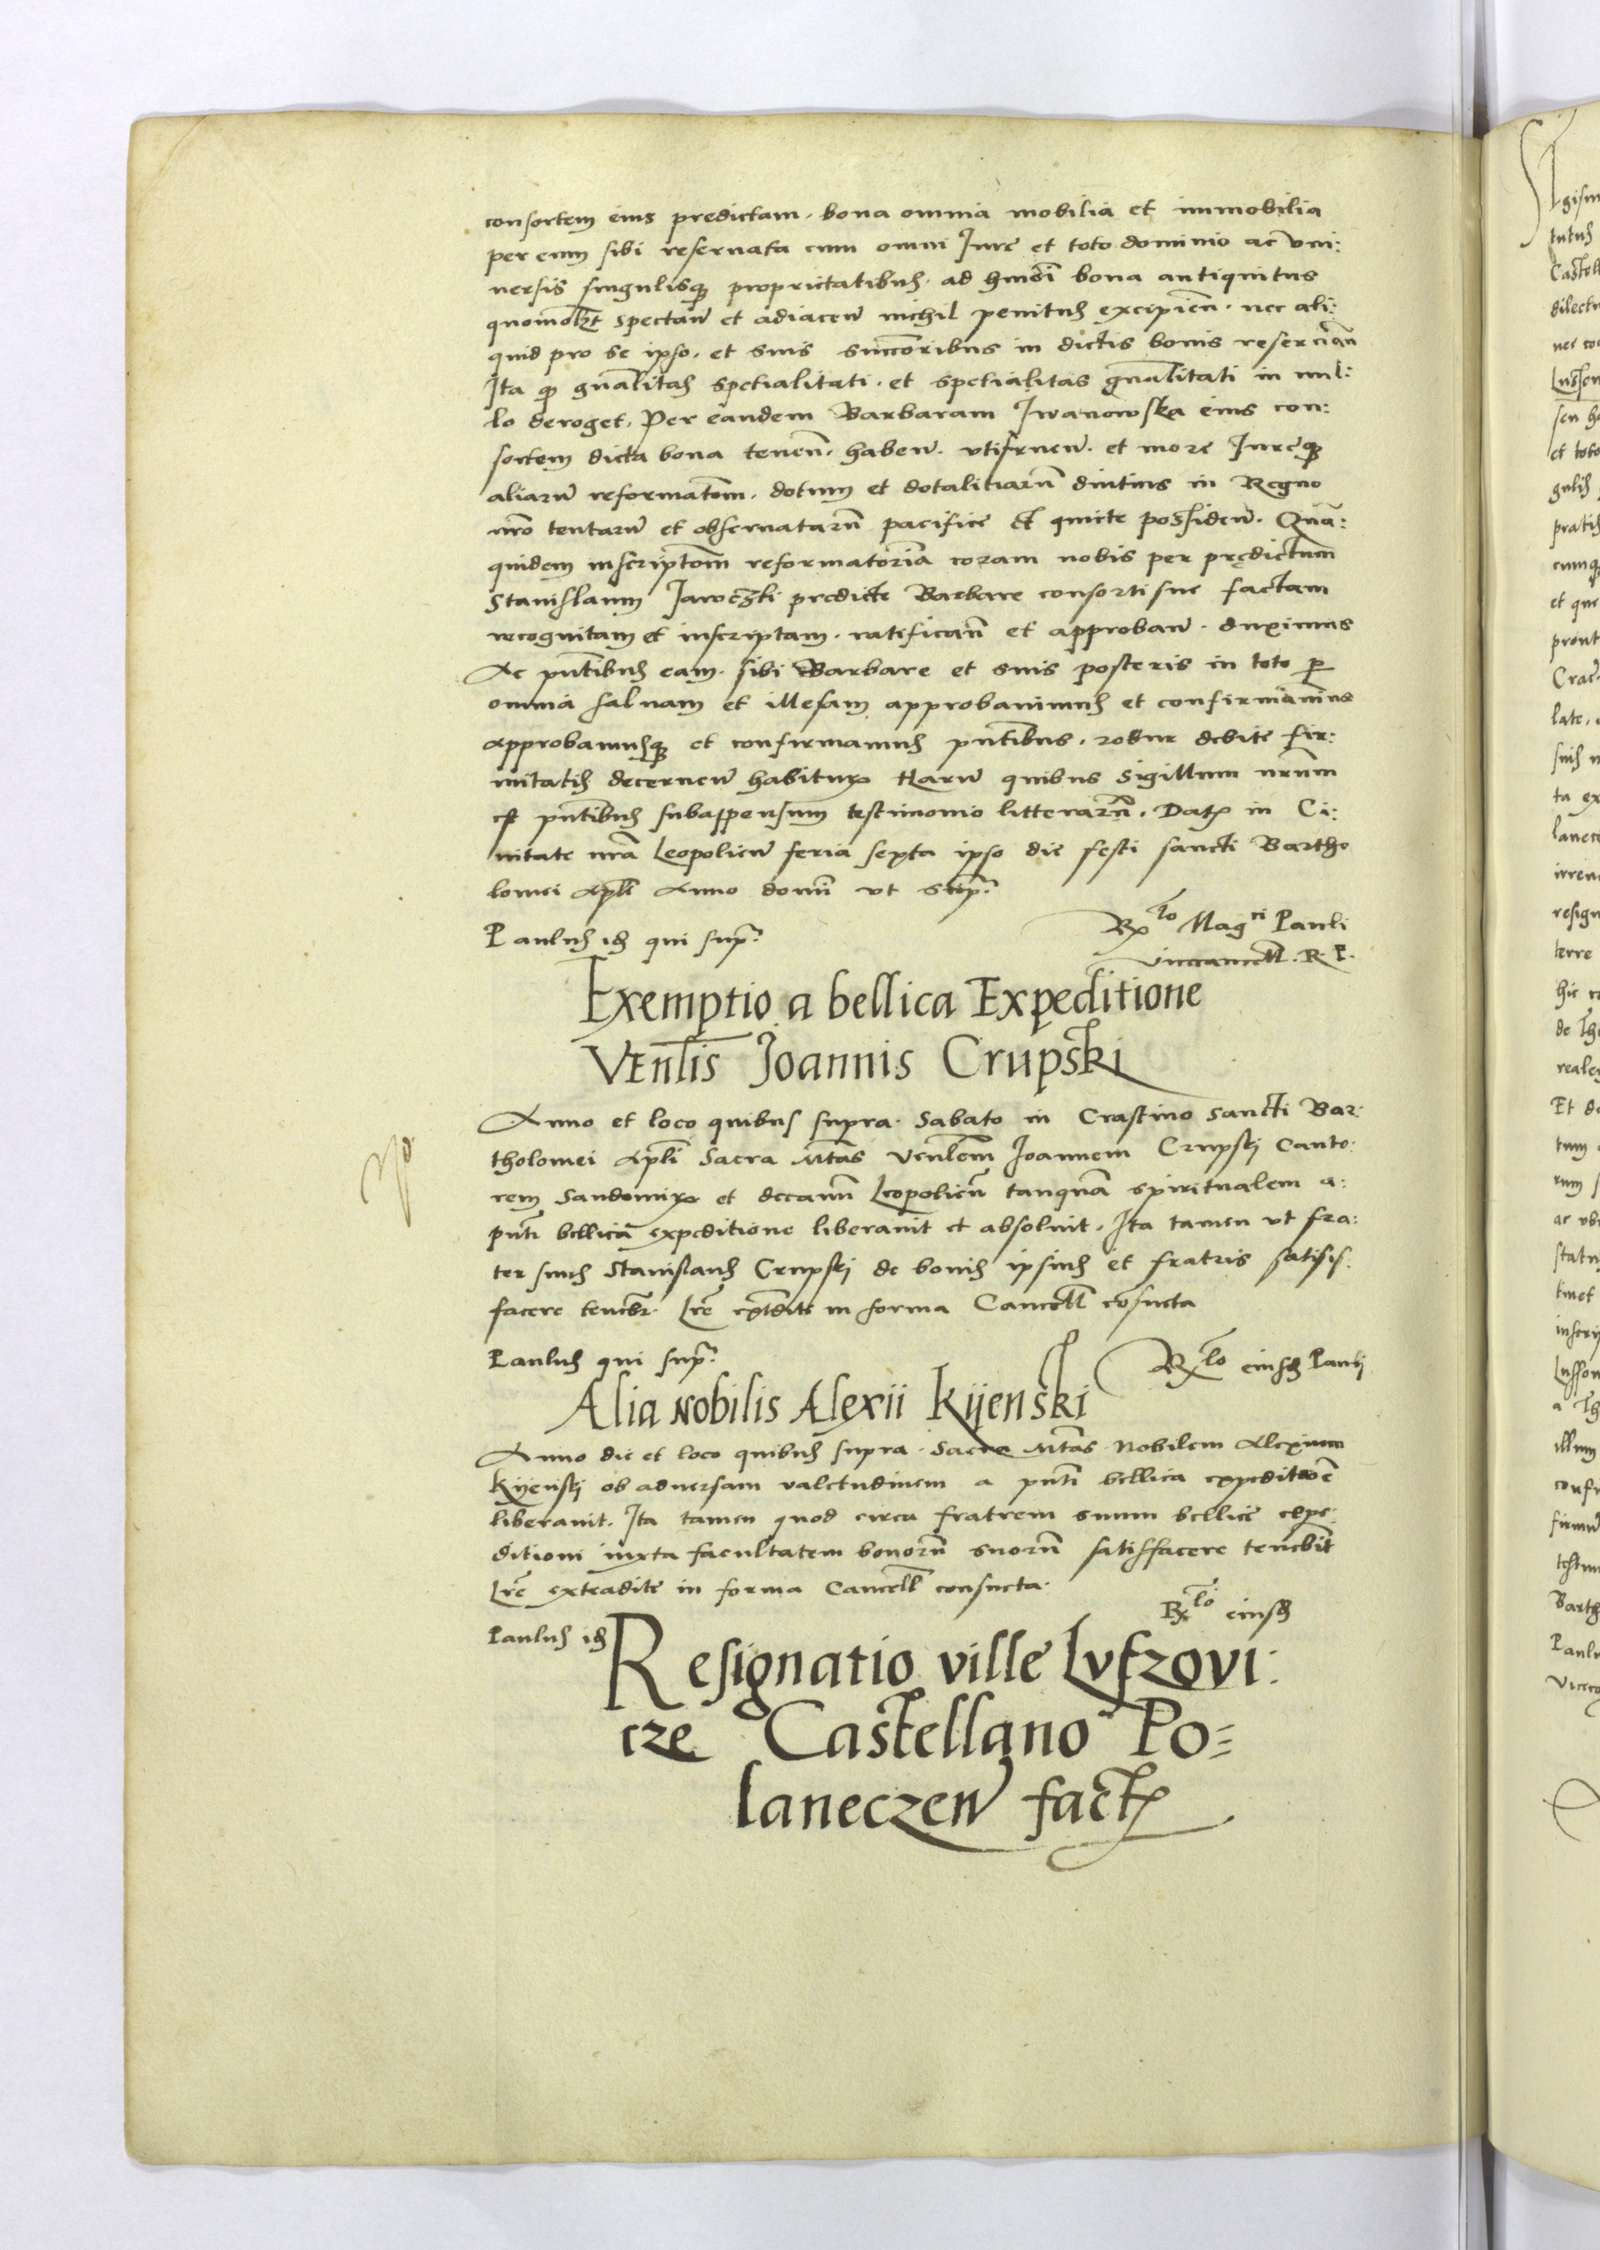 consortem eius predictam. bona omnia mobilia et immobilia
per eum sibi reseruata cum omni Iure et toto dominio ac vni:
uersis singulisqȝ proprietatibus. ad hmōi bona antiquitus
quomolȝt spectan̄ et adiacen̄ nichil penitus excipien̄. nec ali:
quid pro se ipso. et suis succoribus in dictis bonis reseruan̄
Ita qȝ gnalitas spetialitati. et spetialitas gnalitati in nul:
lo deroget. Per eandem Barbaram Iwanowska eius con:
sortem dicta bona tenen̄. haben̄. vtifruen̄. et more Iureqȝ
aliarū reformatom̄. dotum et dotalitiarū diutius in Regno
nrō tentarū et obseruatarū pacifice et quiete possiden̄. Quā:
quidem inscriptom̄ reformatoriā coram nobis per prędictum
Stanislaum predicte Barbare consorti sue factam
recognitam et inscriptam. ratifican̄ et approban̄. duximus
Ac pn̄tibus eam. sibi Barbare et suis posteris in toto ꝑ
omnia saluam et illesam approbauimus et confirmauimus
approbamusqȝ et confirmamus pn̄tibus. robur debite fir:
mitatis decernen̄ habitur Harū quibus Sigillum nrūm
est pn̄tibus subappensum testimonio litterarū. Dat in Ci:
uitate nrā Leopolien̄ feria sexta ipso die festi sancti Bartho
lomei Apl̄i Anno domi vt supͣ.
Paulus id qui supͣ. Rlo Magci Pauli
Vicecancell. R. P.
Exemptio a bellica Expeditione
VEnlis Joannis Crupski
Anno et loco quibus supra. Sabato in Crastino Sancti Bar:
tholomei Apl̄i Sacra Mtās Venlem̄ Joannem Crupskj Canto:
rem Sandomir et decanū Leopolien̄ tanquā spiritualem a:
pn̄ti bellicā expeditione liberauit et absoluit. Ita tamen vt fra:
ter suus Stanislaus Crupskj de bonis ipsius et fratris satisis:
facere teneb. Lrē in forma Cancell consueta
Paulus qui supͣ. Rlo eiusd Pauli
Alia Nobilis Alexii Kijenski
Anno die et loco quibus supra. Sacra Mtās Nobilem Alexium
Kijenskj ob aduersam valetudinem a pn̄ti bellica expeditoē
liberauit. Ita tamen quod circa fratrem suum bellice expe:
ditioni iuxta facultatem bonorū suorū satisfacere tenebit
Lrē extradite in forma Cancell consueta.
Paulus id Rlo eiusd
Resignatio ville Lvfzovi:
cze Castellano Po=
laneczen̄ fact